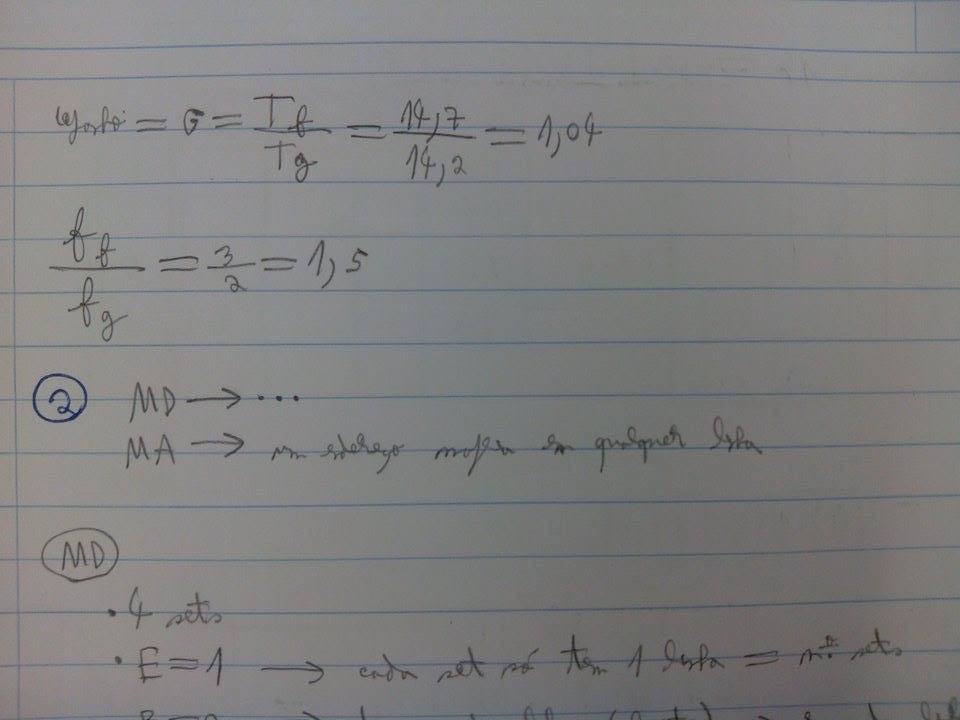 Ganho = G = Tf / Tg = 14,7 / 14,2 = 1,04
ff / fg = 3 / 2 = 1,5
2 MD → ...
MA → um endereço mapea em qualquer linha
MD
• 4 sets
• E = 1 → cada set só tem 1 linha = nº sets